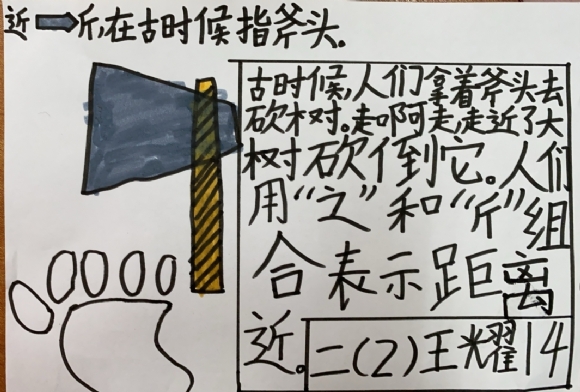 近➡斤,在古时候指斧头.
古时候,人们拿着斧头去
砍树。走啊走,走近了大
树砍倒它。人们
用“之”和“斤”组
合表示距离
近。
二(2)王耀14